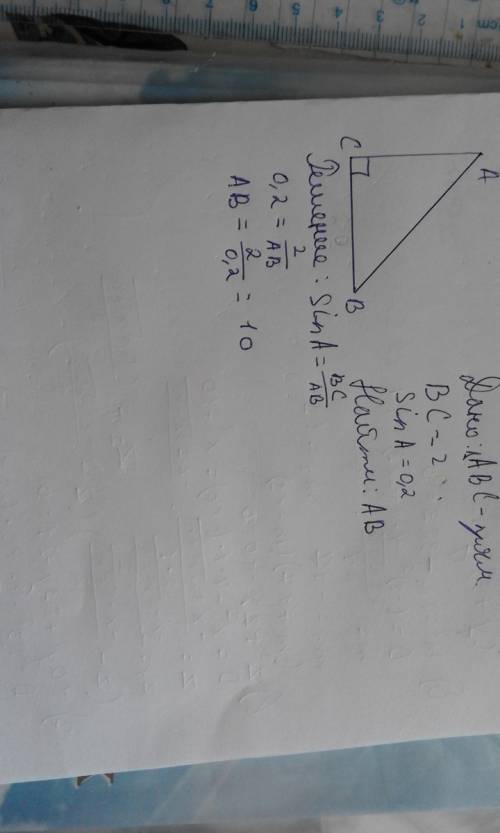 A
C
B
Дано: ΔABC - прям.
BC = 2
Sin A = 0,2
Найти: AB
Решение: Sin A = BC/AB
0,2 = 2/AB
AB = 2/0,2 = 10